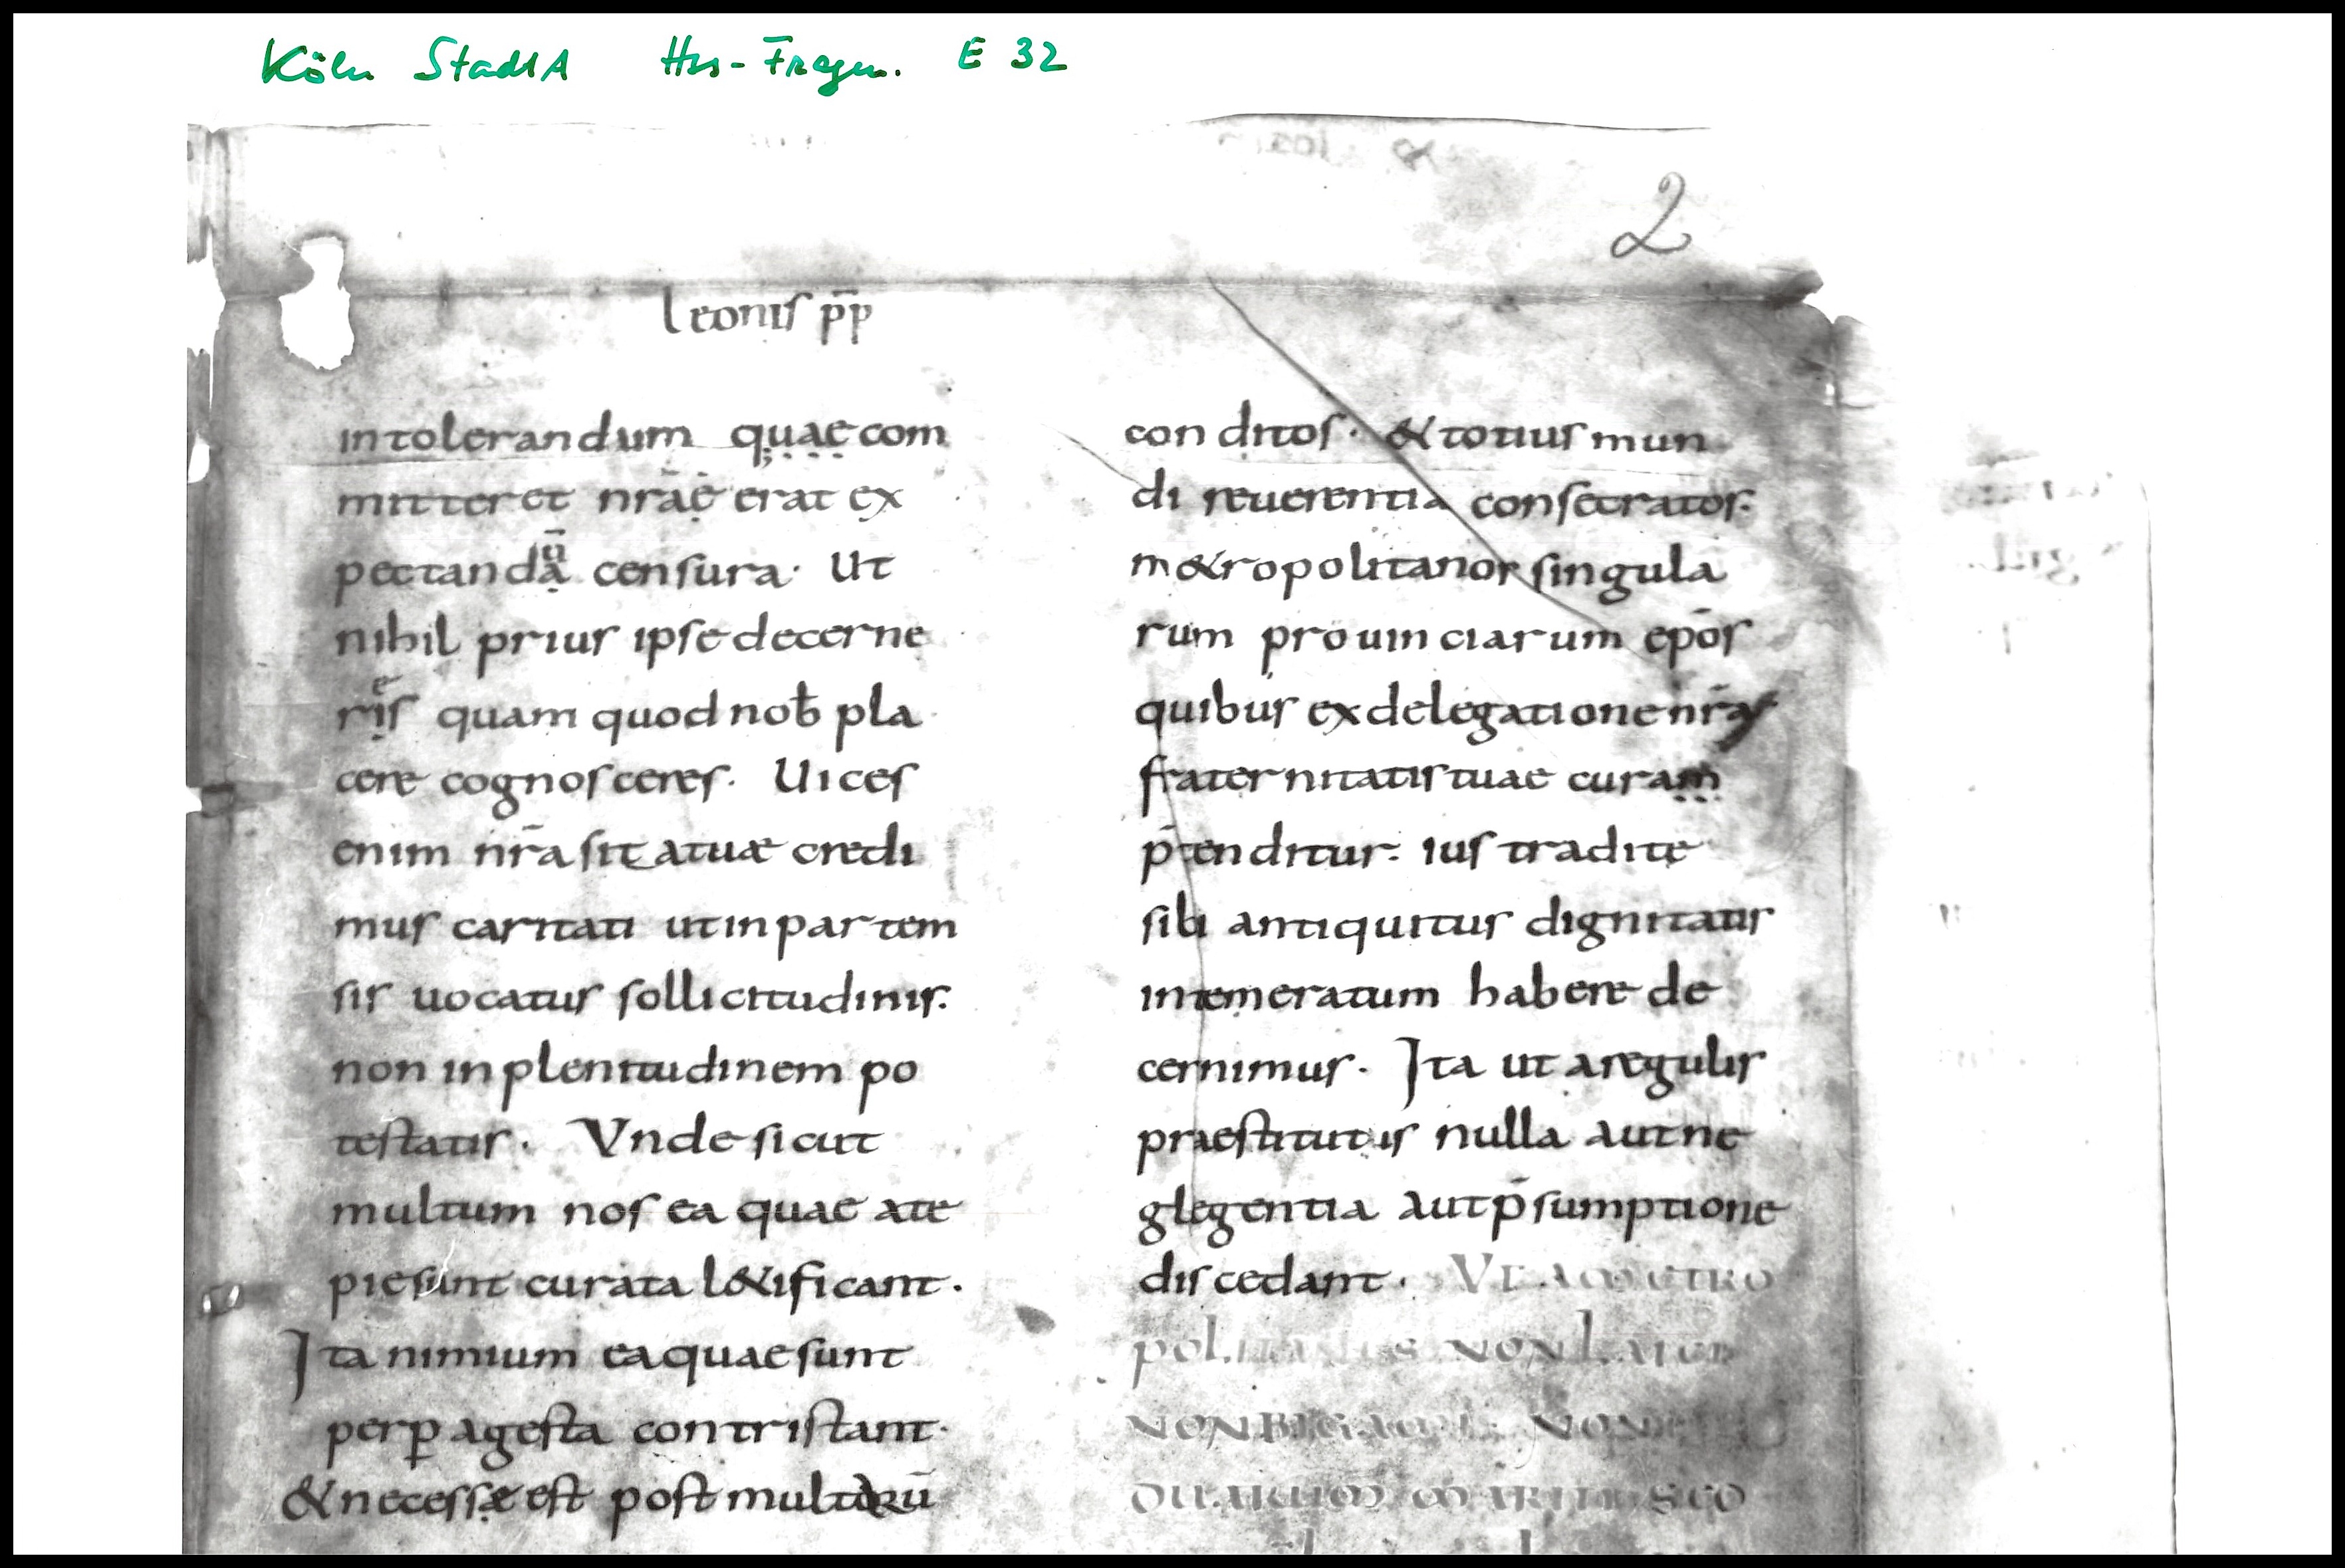 Köln StadtA Hss-Fragm. E 32
2
leonis p̄p
intolerandum quae com
mitteret nr̄ae erat ex
pectanda ū censura· Ut
nihil prius ipse decerne
ris e quam quod nob̄ pla
cere cognosceres. Uices
enim nr̄a sit atuæ credi
mus caritati ut in partem
sis uocatus sollicitudinis.
non in plenitudinem po
testatis. Vnde sicut
multum nos ea quae ate
pie sunt curata l&ificant.
Ita nimium ea quae sunt
perꝑ agesta contristant·
& necessæ est post multorū
conditos· & totius mun
di reuerentia consecratos·
m&ropolitanos singula
rum prouinciarum ep̄os
quibus ex delegatione nr̄a
fraternitatis tuae curam
p̄tenditur· ius tradite
sibi antiquitus dignitatis
intemeratum habere de
cernimus. Ita ut aregulis
praestitutis nulla aut ne
glegentia aut p̄sumptione
discedant. VT METRO
politanus NON
NON NON